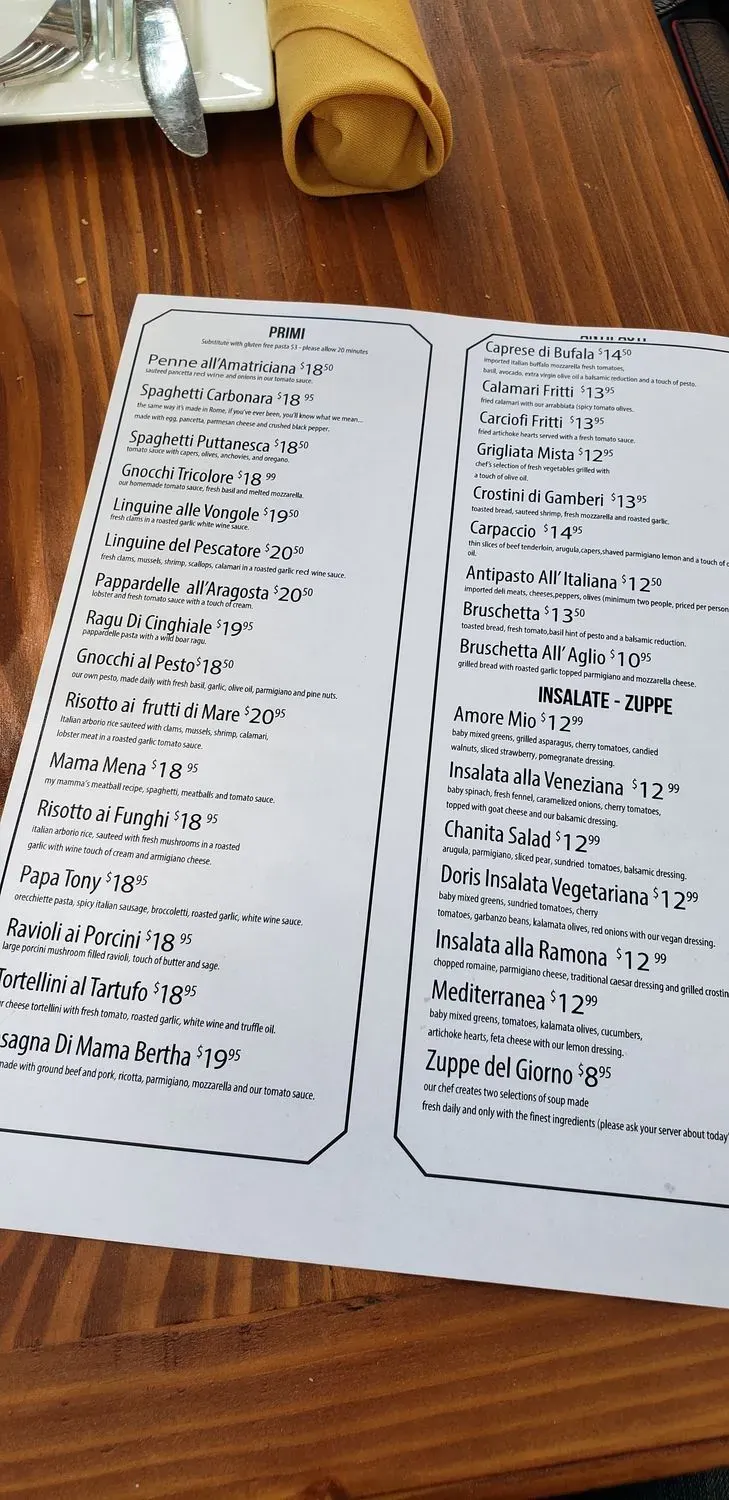 PRIMI
Substitute with gluten free pasta $3 - please allow 20 minutes
Penne all'Amatriciana $18 50
sauteed pancetta red wine and onions in our tomato sauce.
Spaghetti Carbonara $18 95
the same way it's made in Rome, if you've ever been, you'll know what we mean...
made with egg, pancetta, parmesan cheese and crushed black pepper.
Spaghetti Puttanesca $18 50
tomato sauce with capers, olives, anchovies, and oregano.
Gnocchi Tricolore $18 99
our homemade tomato sauce, fresh basil and melted mozzarella.
Linguine alle Vongole $19 50
fresh clams in a roasted garlic white wine sauce.
Linguine del Pescatore $20 50
fresh clams, mussels, shrimp, scallops, calamari in a roasted garlic red wine sauce.
Pappardelle all'Aragosta $20 50
lobster and fresh tomato sauce with a touch of cream.
Ragu Di Cinghiale $19 95
pappardelle pasta with a wild boar ragu.
Gnocchi al Pesto $18 50
our own pesto, made daily with fresh basil, garlic, olive oil, parmigiano and pine nuts.
Risotto ai frutti di Mare $20 95
Italian arborio rice sauteed with clams, mussels, shrimp, calamari,
lobster meat in a roasted garlic tomato sauce.
Mama Mena $18 95
my mamma's meatball recipe, spaghetti, meatballs and tomato sauce.
Risotto ai Funghi $18 95
italian arborio rice, sauteed with fresh mushrooms in a roasted
garlic with wine touch of cream and armigiano cheese.
Papa Tony $18 95
orecchiette pasta, spicy italian sausage, broccoletti, roasted garlic, white wine sauce.
Ravioli ai Porcini $18 95
large porcini mushroom filled ravioli, touch of butter and sage.
Tortellini al Tartufo $18 95
r cheese tortellini with fresh tomato, roasted garlic, white wine and truffle oil.
sagna Di Mama Bertha $19 95
made with ground beef and pork, ricotta, parmigiano, mozzarella and our tomato sauce.
Caprese di Bufala $14 50
imported italian buffalo mozzarella fresh tomatoes,
basil, avocado, extra virgin olive oil a balsamic reduction and a touch of pesto.
Calamari Fritti $13 95
fried calamari with our arrabbiata (spicy tomato olives.
Carciofi Fritti $13 95
fried artichoke hearts served with a fresh tomato sauce.
Grigliata Mista $12 95
chef's selection of fresh vegetables grilled with
a touch of olive oil.
Crostini di Gamberi $13 95
toasted bread, sauteed shrimp, fresh mozzarella and roasted garlic.
Carpaccio $14 95
thin slices of beef tenderloin, arugula,capers,shaved parmigiano lemon and a touch of
oil.
Antipasto All'Italiana $12 50
imported deli meats, cheeses,peppers, olives (minimum two people, priced per person
Bruschetta $13 50
toasted bread, fresh tomato,basil hint of pesto and a balsamic reduction.
Bruschetta All'Aglio $10 95
grilled bread with roasted garlic topped parmigiano and mozzarella cheese.
INSALATE - ZUPPE
Amore Mio $12 99
baby mixed greens, grilled asparagus, cherry tomatoes, candied
walnuts, sliced strawberry, pomegranate dressing.
Insalata alla Veneziana $12 99
baby spinach, fresh fennel, caramelized onions, cherry tomatoes,
topped with goat cheese and our balsamic dressing.
Chanita Salad $12 99
arugula, parmigiano, sliced pear, sundried tomatoes, balsamic dressing.
Doris Insalata Vegetariana $12 99
baby mixed greens, sundried tomatoes, cherry
tomatoes, garbanzo beans, kalamata olives, red onions with our vegan dressing.
Insalata alla Ramona $12 99
chopped romaine, parmigiano cheese, traditional caesar dressing and grilled crostin
Mediterranea $12 99
baby mixed greens, tomatoes, kalamata olives, cucumbers,
artichoke hearts, feta cheese with our lemon dressing.
Zuppe del Giorno $8 95
our chef creates two selections of soup made
fresh daily and only with the finest ingredients (please ask your server about today'